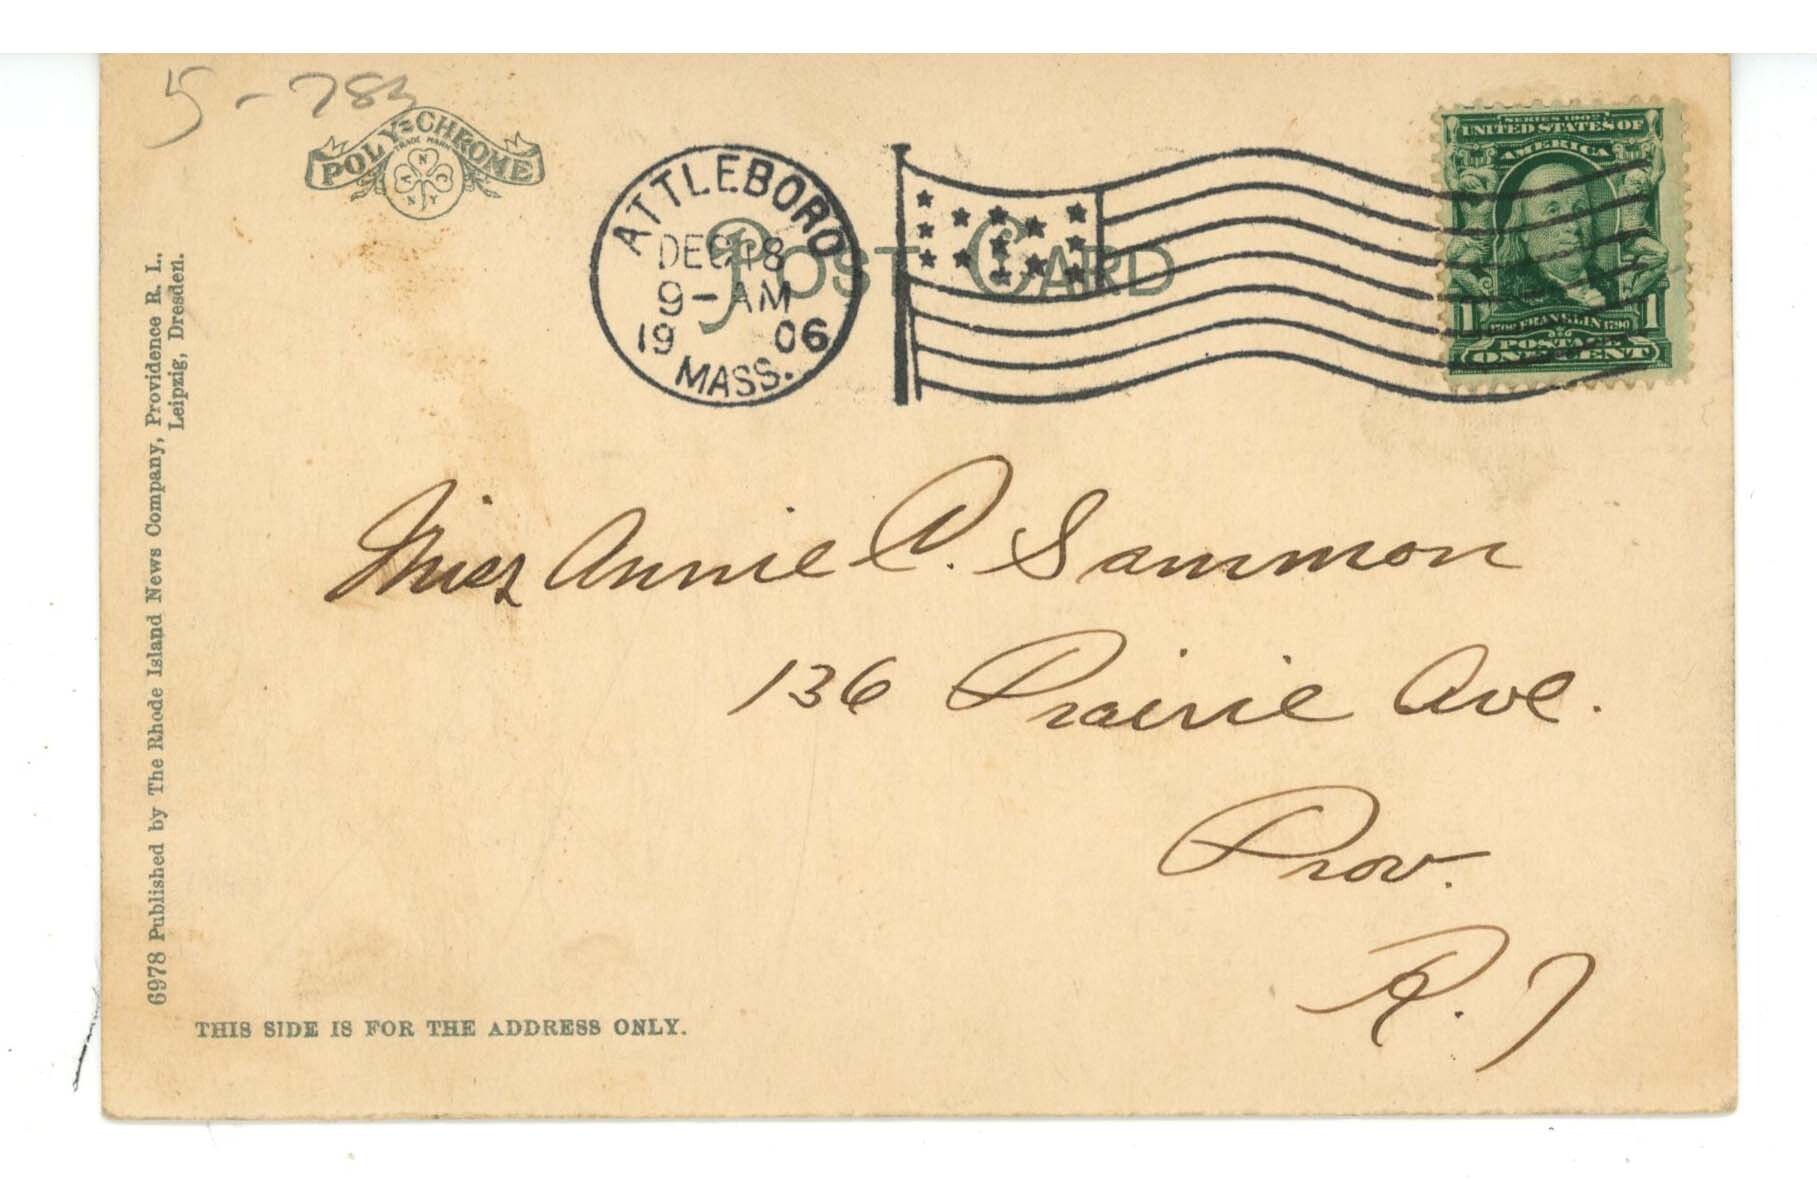 5-783
POLY-CHROME
TRADE MARK
N
A C
N Y
ATTLEBORO
DEC 18
9-AM
19 06
MASS.
POST CARD
SERIES 1902
UNITED STATES OF
AMERICA
1 1706 FRANKLIN 1790 1
POSTAGE
ONE CENT
Miss Annie C. Sammon
136 Prairie Ave.
Prov.
R. I
6978 Published by The Rhode Island News Company, Providence R. I.,
Leipzig, Dresden.
THIS SIDE IS FOR THE ADDRESS ONLY.